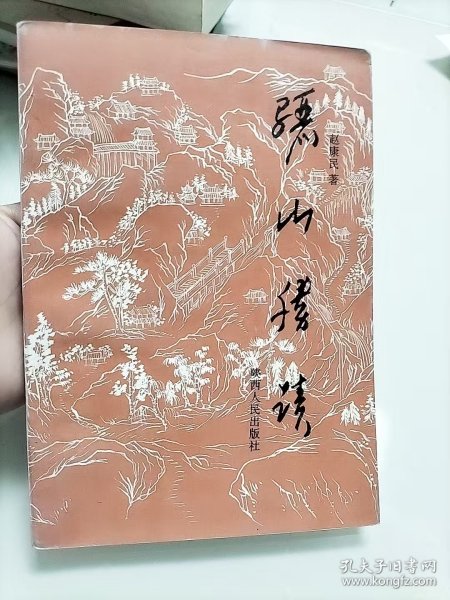 骊山胜蹟
赵康民 著
陕西人民出版社
孔夫子旧书网
www.kongfz.com